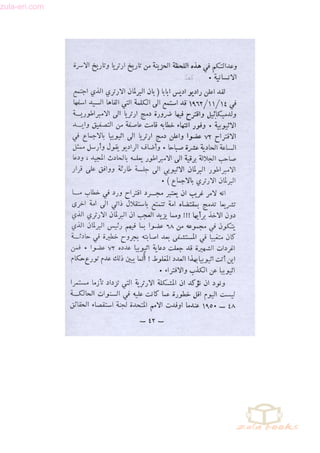 zula-eri.com
وعدالتكم في هذه اللحظة الحزينة من تاريخ ارتريا وتاريخ الاسرة
الانسانية .
لقد اعلن راديو اديس ابابا ( بان البرلمان الارتري الذي اجتمع
في ١٩٦٢/١١/١٤ قد استمع الى الكلمة التي القاها السيد اسفها
ولدميكائيل واقترح فيها ضرورة دمج ارتريا الى الامبراطوريــة
الاثيوبية . وفور انتهاء خطابه قامت عاصفة من التصفيق وايــد
الاقتراح ٧٢ عضوا واعلن دمج ارتريا الى اثيوبيا بالاجماع في
الساعة الحادية عشرة صباحا . وأضاف الراديو يقول وأرسل ممثل
صاحب الجلالة برقية الى الامبراطور يعلمه بالحادث المجيد ، ودعا
الامبراطور البرلمان الاثيوبي الى جلسة طارئة ووافق على قرار
البرلمان الارتري بالاجماع ) .
انه لامر غريب ان يعتبر مجــرد اقتراح ورد في خطاب مــا
تشريعا تندمج بمقتضاه امة تتمتع باستقلال ذاتي الى امة اخرى
دون الاخذ برأيها !!! ومما يزيد العجب ان البرلمان الارتري الذي
يتكون في مجموعه من ٦٨ عضوا بما فيهم رئيس البرلمان الذي
كان متغيبا في المستشفى بعد اصابته بجروح خطيرة في حادثــة
انفردات الشهيرة قد جعلت دعاية اثيوبيا عدده ٧٢ عضوا . فمن
اين أتت اثيوبيا بهذا العدد المغلوط ! أنما يبين ذلك عدم تورع حكام
اثيوبيا عن الكذب والافتراء .
ونود ان نؤكد ان المشكلة الارترية التي تزداد تأزما مستمرا
ليست اليوم اقل خطورة عما كانت عليه في السنوات الحالكــة
٤٨ — ١٩٥٠ عندما اوفدت الامم المتحدة لجنة استقصاء الحقائق
— ٤٢ —
zula books